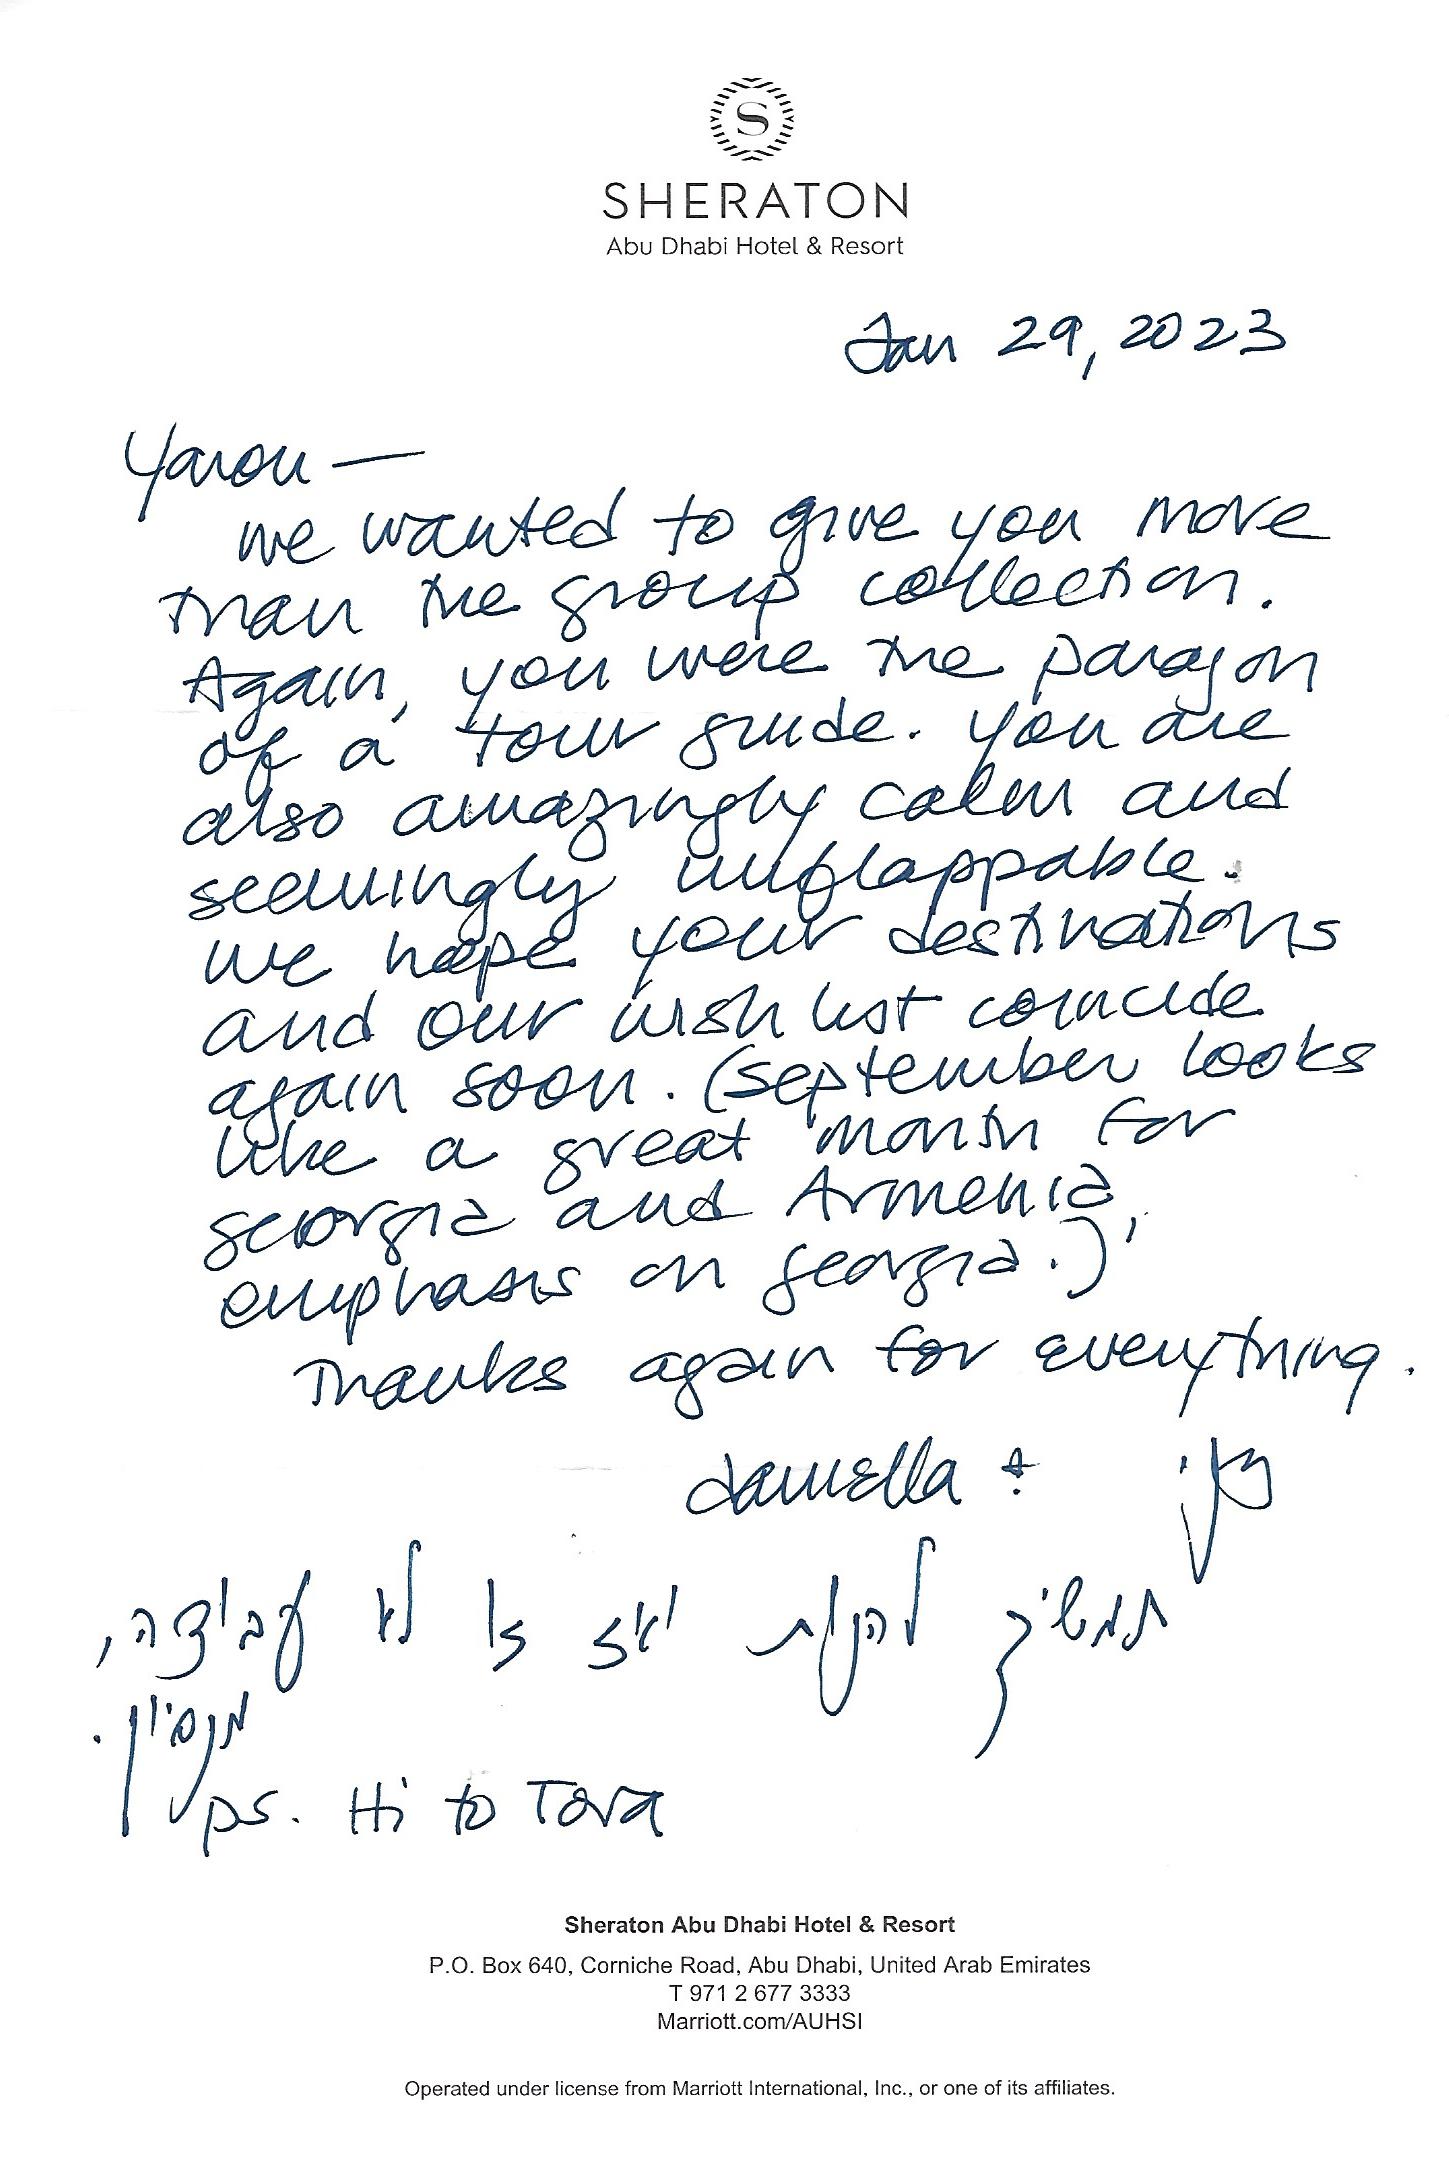 S
SHERATON
Abu Dhabi Hotel & Resort
Jan 29, 2023
Yaron —
we wanted to give you more
than the group collection.
Again, you were the paragon
of a tour guide. you are
also amazingly calm and
seemingly unflappable.
we hope your destinations
and our wish list coincide
again soon. (September looks
like a great month for
georgia and Armenia,
emphasis on georgia.)
Thanks again for everything.
daniella +
תמשיך להנות ואז זו לא עבודה,
מנסיון.
ps. Hi to Tova
Sheraton Abu Dhabi Hotel & Resort
P.O. Box 640, Corniche Road, Abu Dhabi, United Arab Emirates
T 971 2 677 3333
Marriott.com/AUHSI
Operated under license from Marriott International, Inc., or one of its affiliates.